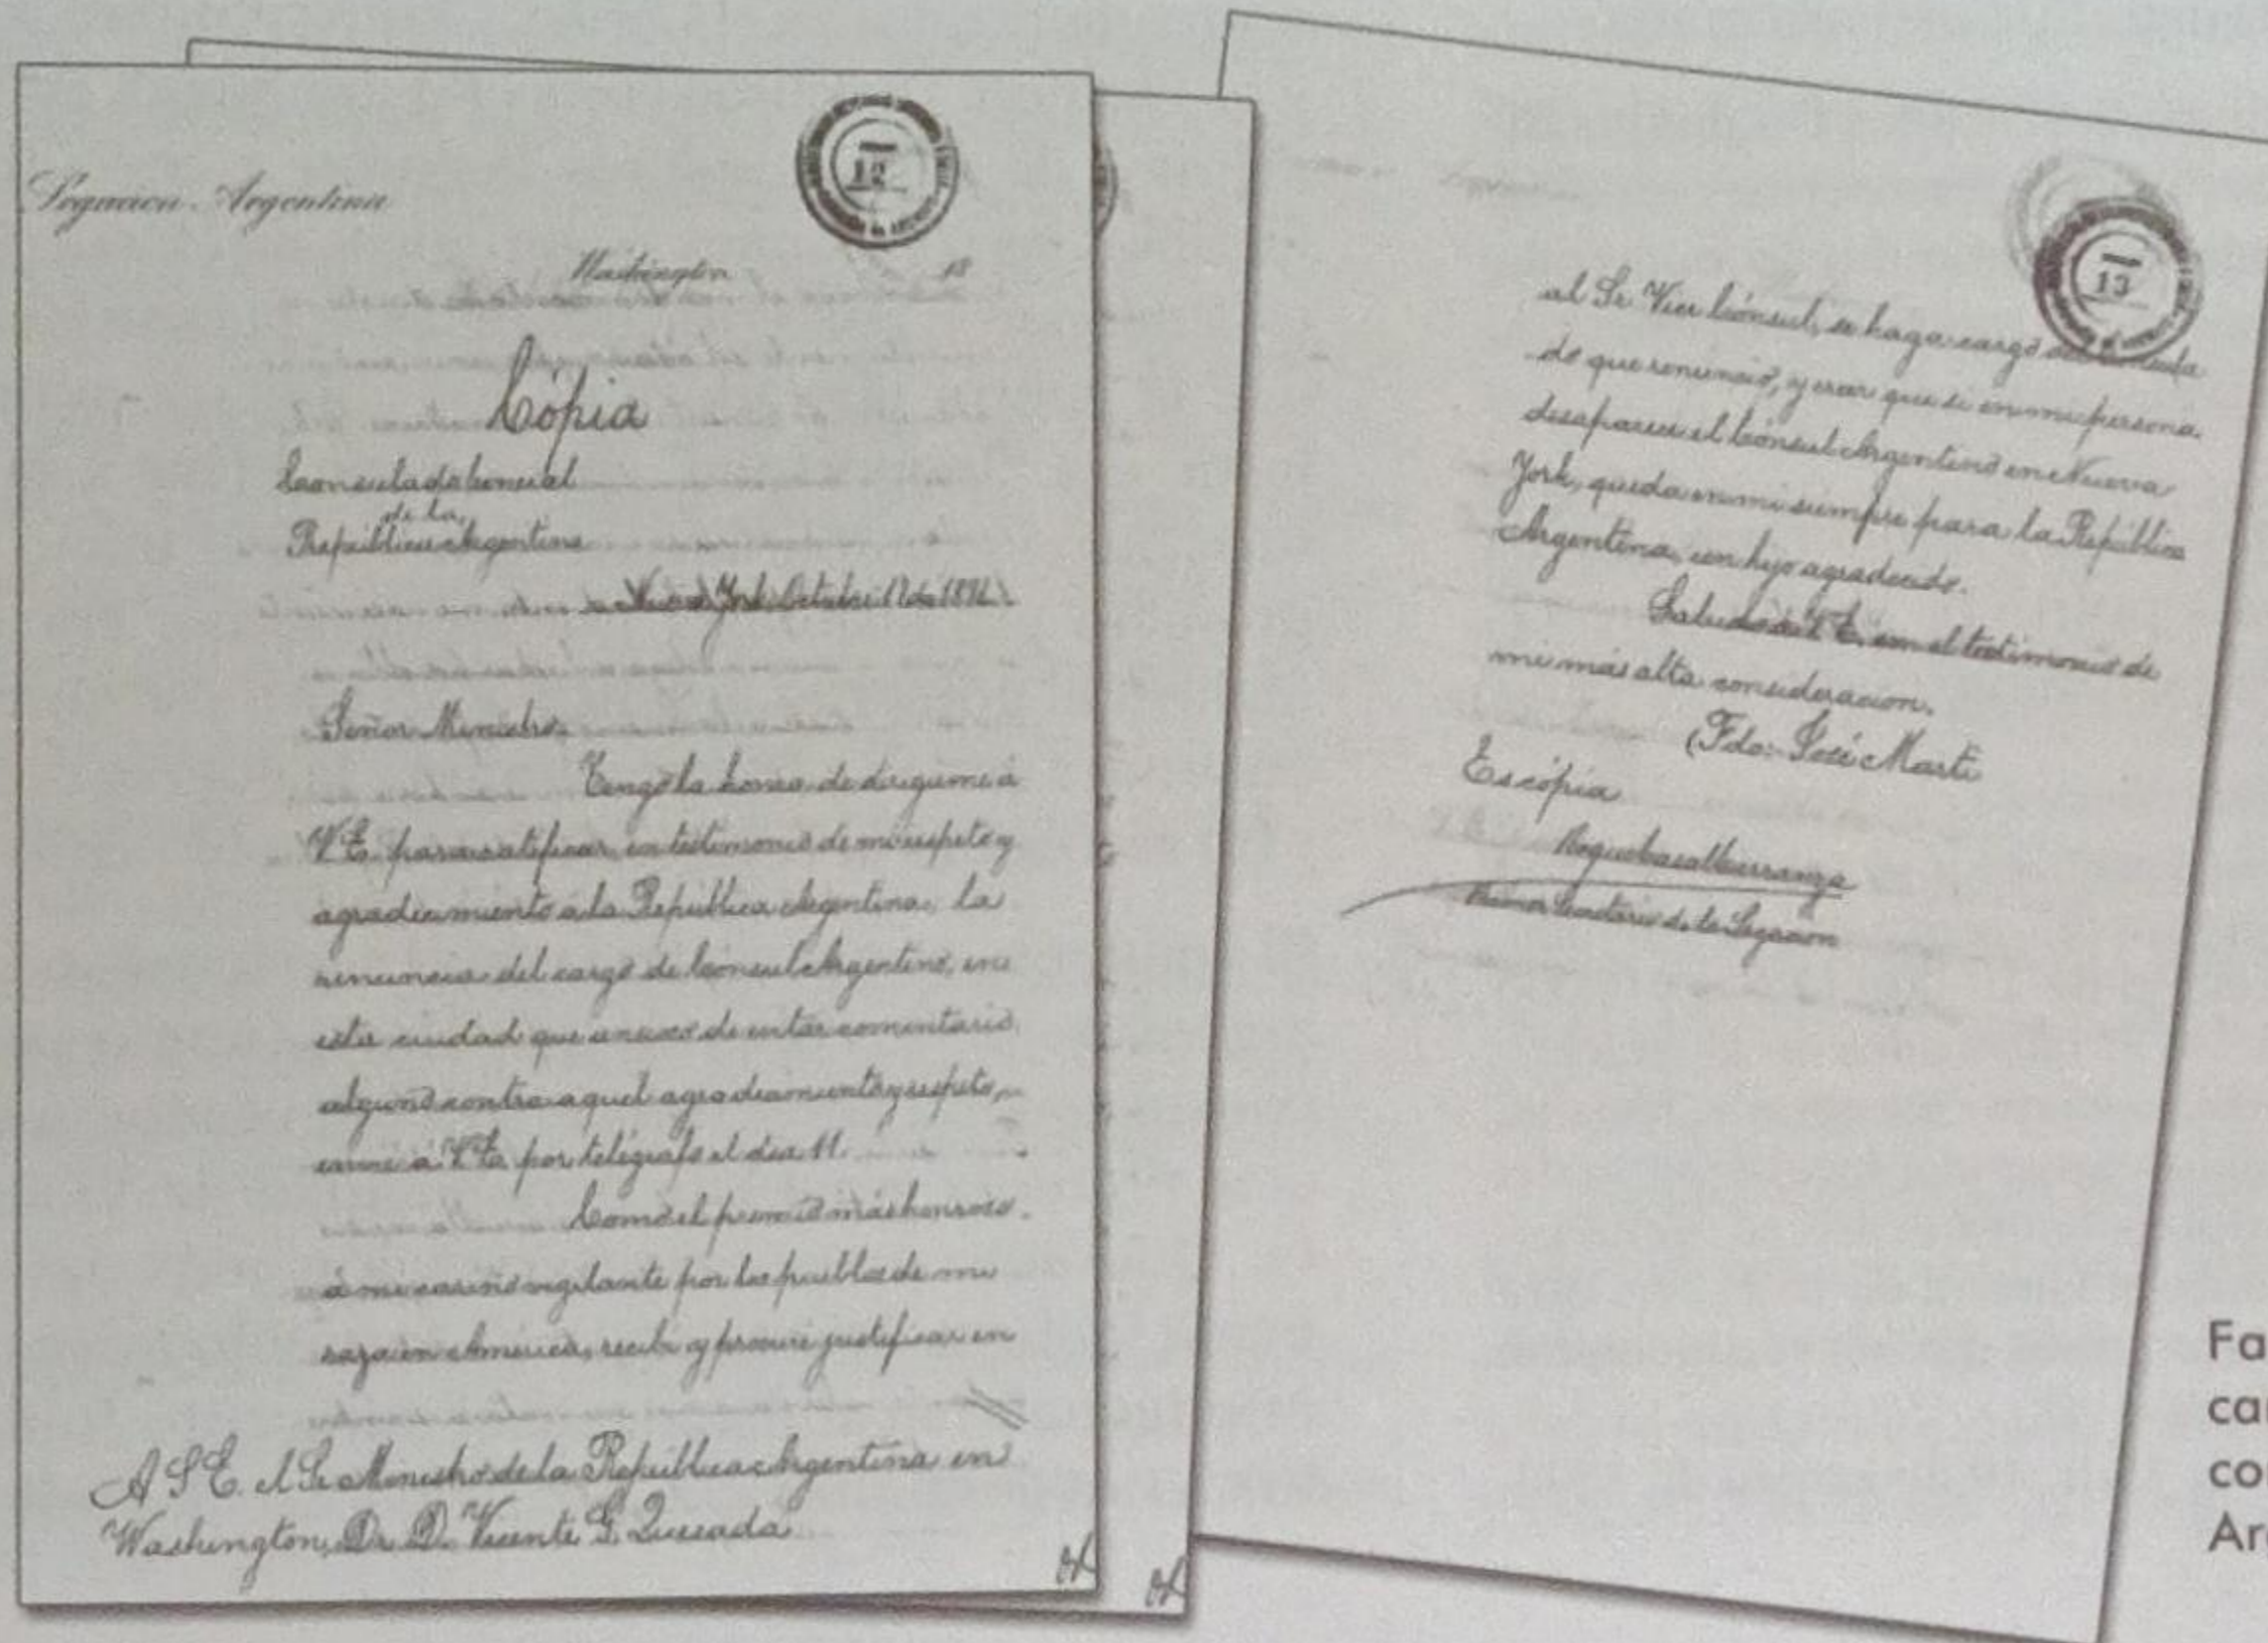 Legacion Argentina
12
Washington 18
Cópia
Consulado General
de la
República Argentina
Nueva York, Octubre 17 de 1891
Señor Ministro
Tengo la honra de dirigirme á
V.E. para ratificar, en testimonio de mi respeto y
agradecimiento a la República Argentina, la
renuncia del cargo de Cónsul Argentino, en
esta ciudad que ansioso de evitar comentario
alguno contra aquel agradecimiento y respeto,
envié á V.E. por telégrafo el dia 11.
Como el premio más honroso
á mi cariño vigilante por los pueblos de mi
raza en America, recibí y procuré justificar en
A S.E. el Sr. Ministro de la República Argentina en
Washington, Dr. D. Vicente G. Quesada
13
al Sr. Vice Cónsul, se haga cargo del
de que renuncio, y crear que si en mi persona
desaparece el Cónsul Argentino en Nueva
York, queda en mi siempre para la República
Argentina, un hijo agradecido.
Saludo á V.E. con el testimonio de
mi más alta consideracion.
(Fdo: José Martí
Es cópia
Primer Secretario de la Legacion
Fa
ca
co
Ar